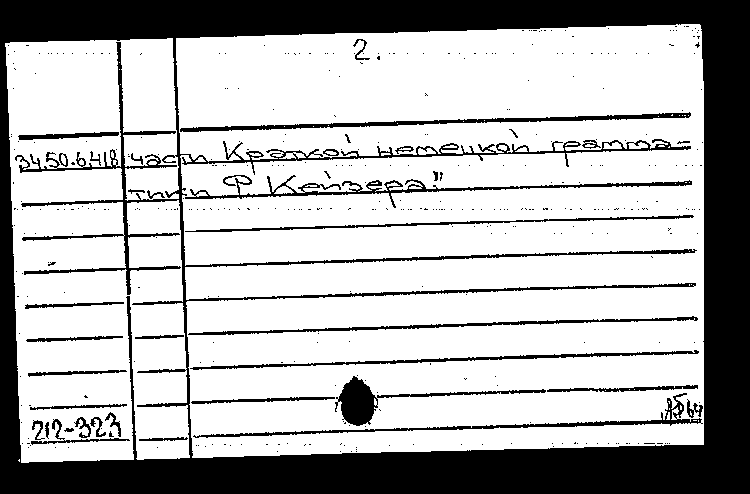 2.
34.50.6.418 части Краткой немецкой грамма-
тики Ф. Кейзера."
212-323